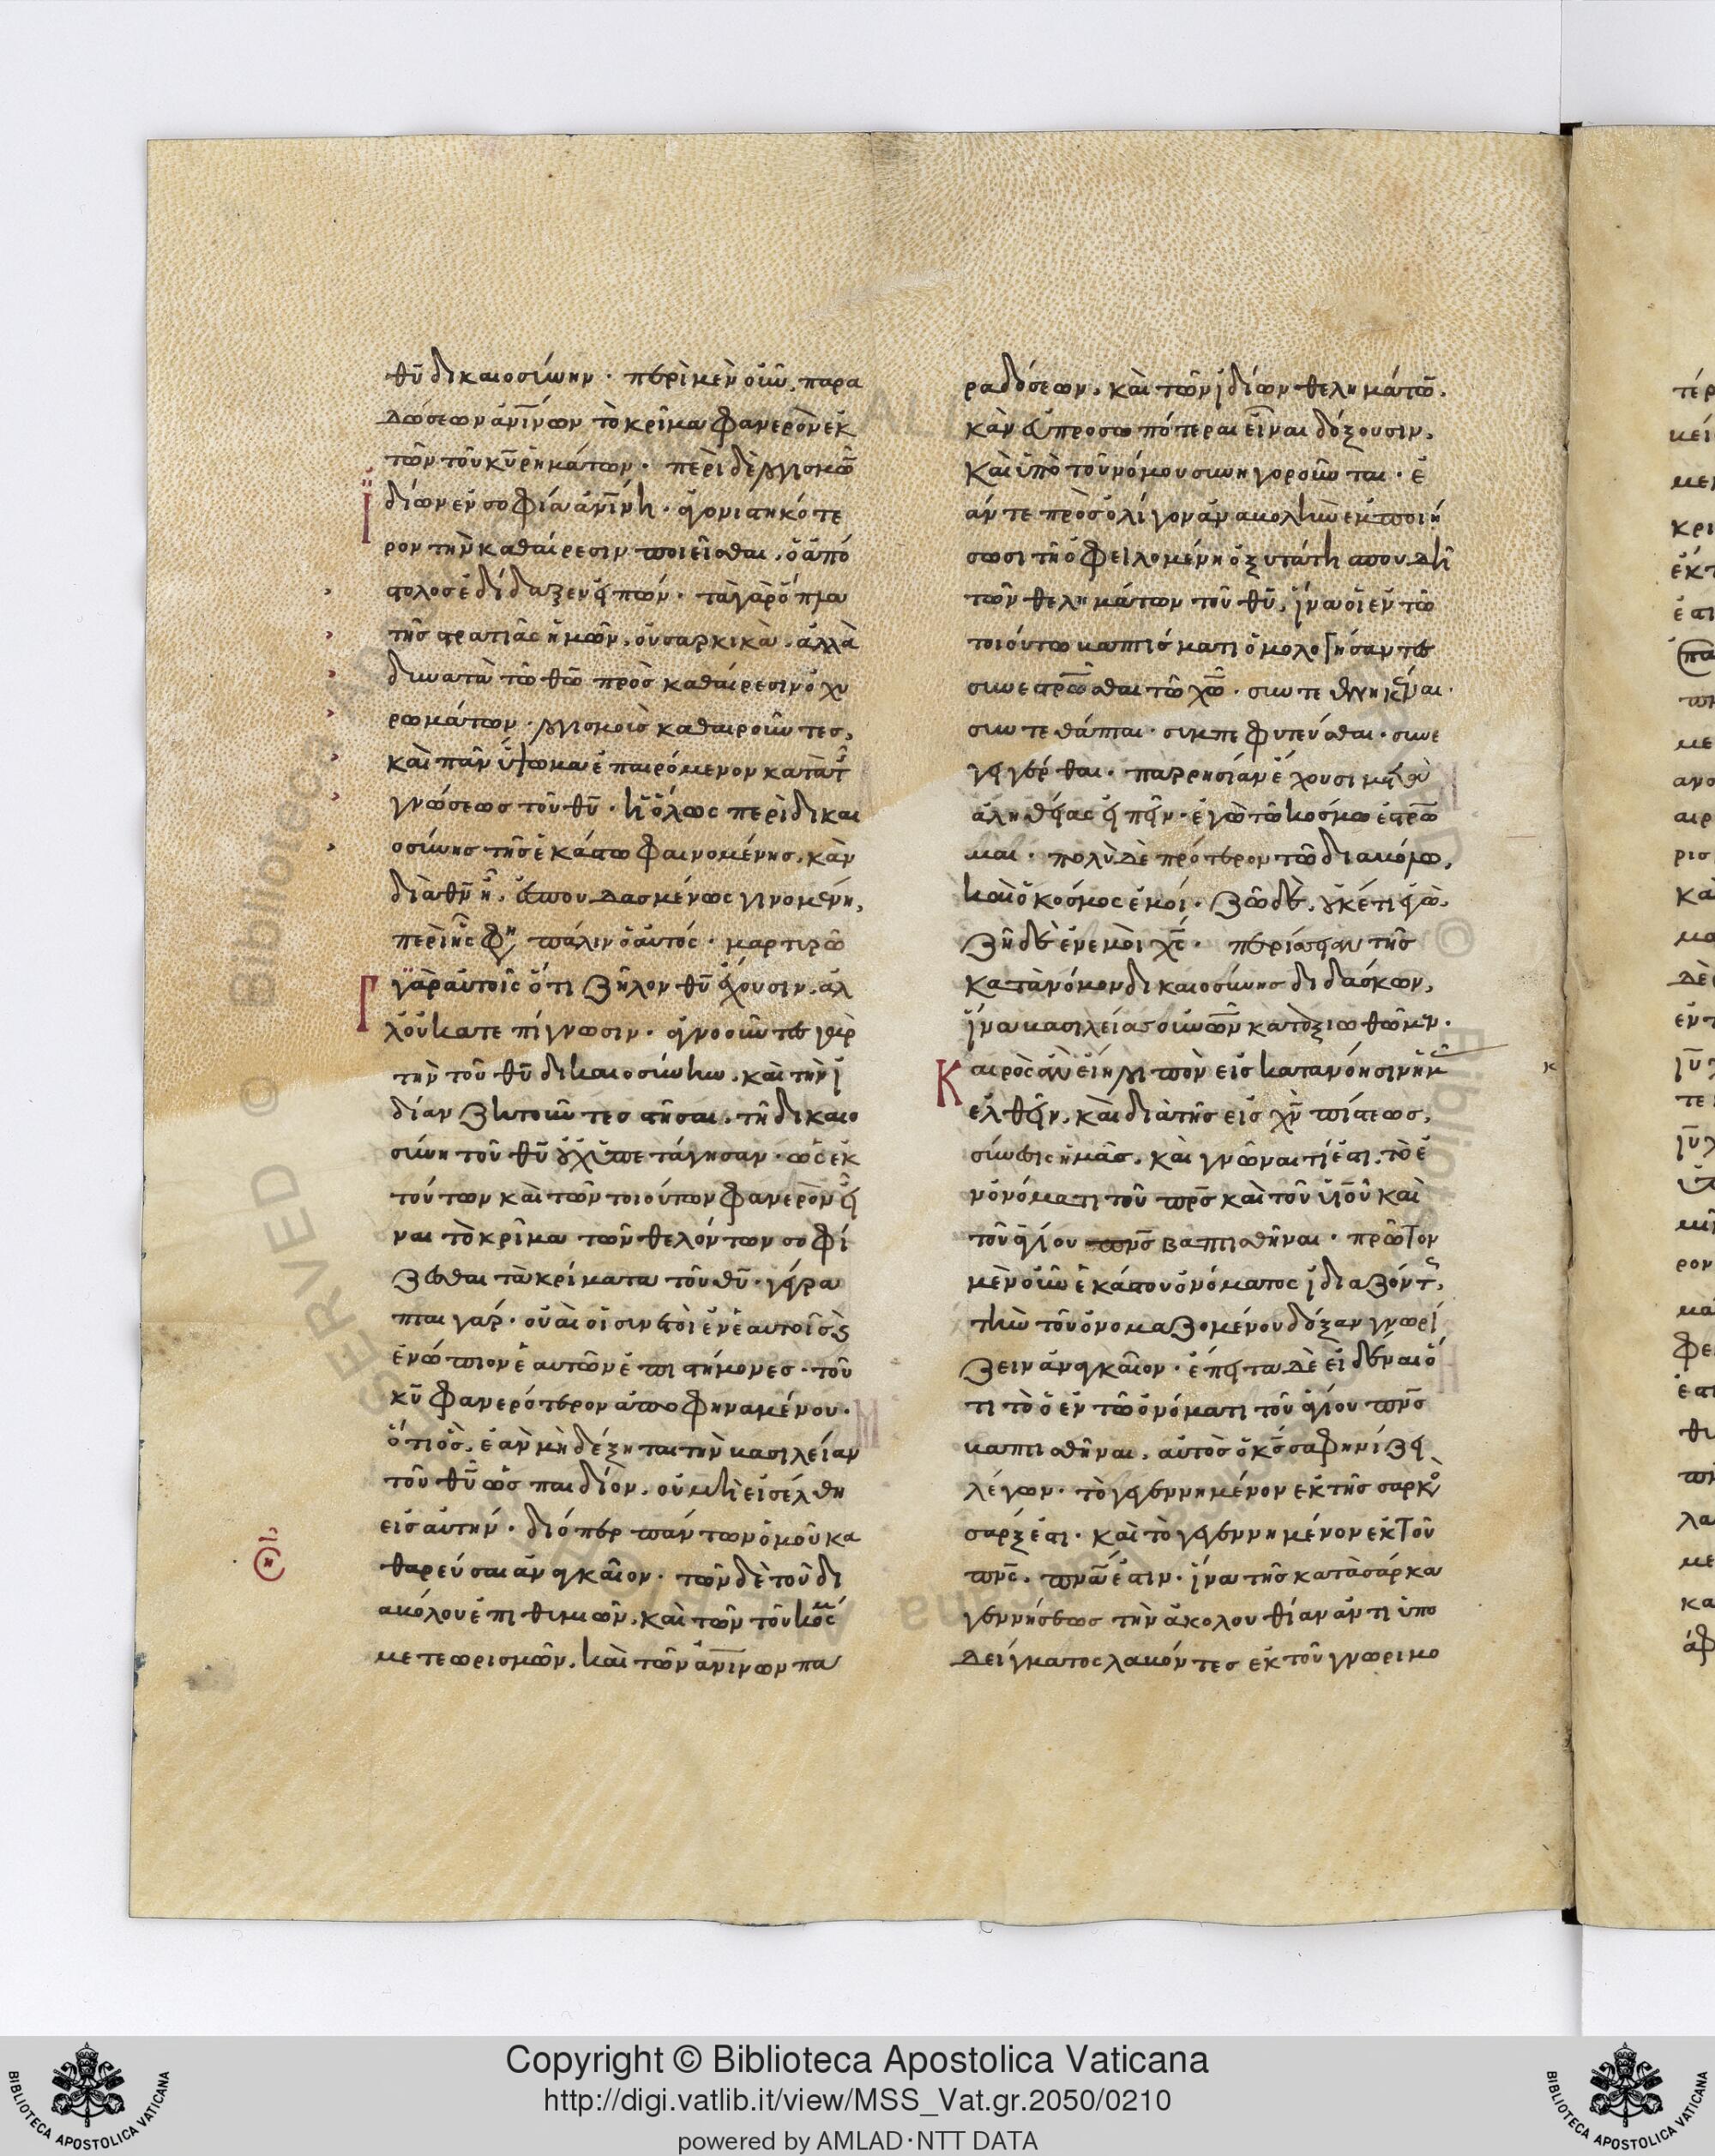 θῦ δικαιοσύνην · περὶ μὲν οὖν, παρα
δώσεων ἀνίνων τὸ κρῖμα φανερὸν ἐκ
τῶν τοῦ κῦ ῥημάτων · περὶ δὲ λογισμῶ
ἰδίων ἐν σοφία ἀνίνη · γονιστικότε
ρον τὴν καθαίρεσιν ποιεῖσθαι, ὁ ἀπό
στολος ἐδίδαξεν εἰπών · τὰ γὰρ ὅπλα
τῆς στρατιᾶς ἡμῶν, οὐ σαρκικὰ, ἀλλὰ
δυνατὰ τῶ θῶ πρὸς καθαίρεσιν ὀχυ
ρωμάτων · λογισμοὺς καθαιροῦντες,
καὶ πᾶν ὕψωμα ἐπαιρόμενον κατὰ τ
γνώσεως τοῦ θῦ · ἢ ὅλως περὶ δικαι
οσύνης τῆς ἑκάστω φαινομένης, κἂν
διὰ θν ἦ, ἐσπουδασμένως γινομένη,
περὶ ἧς φη πάλιν ὁ αὐτός · μαρτυρῶ
γὰρ αὐτοῖς ὅτι ζῆλον θῦ ἔχουσιν, ἀλ
λ' οὐ κατ' ἐπίγνωσιν · ἀγνοοῦντες γὰρ
τὴν τοῦ θῦ δικαιοσύνην, καὶ τὴν ἰ
δίαν ζητοῦντες στῆσαι, τῆ δικαιο
σύνη τοῦ θῦ οὐχ ὑπετάγησαν · ὡς ἐκ
τούτων καὶ τῶν τοιούτων φανερὸν εἶ
ναι τὸ κρῖμα τῶν θελόντων σοφί
ζεσθαι τὰ κρίματα τοῦ θῦ · γέγρα
πται γάρ · οὐαὶ οἱ συνετοὶ ἐν ἑαυτοῖς ϗ
ἐνώπιον ἑαυτῶν ἐπιστήμονες · τοῦ
κῦ φανερότερον ἀποφηναμένου ·
ὅτι ὃς, ἐὰν μὴ δέξηται τὴν βασιλείαν
τοῦ θῦ ὡς παιδίον, οὐ μὴ εἰσέλθη
εἰς αὐτήν · διόπερ πάντων ὁμοῦ κα
θαρεύσαι ἀναγκαῖον · τῶν δὲ τοῦ δι
αβόλου ἐπιθυμιῶν, καὶ τῶν τοῦ κόσ
μετεωρισμῶν, καὶ τῶν ἀνίνων πα
ραδόσεων, καὶ τῶν ἰδίων θελημάτω,
κἂν εὐπροσωπότεραι εἶναι δόξουσιν,
καὶ ὑπὸ τοῦ νόμου συνηγοροῦνται · ἐ
άν τε πρὸς ὀλίγον ἀναβολὴν ἐμποιή
σωσι τῆ ὀφειλομένη ὀξυτάτη σπουδῆ
τῶν θελημάτων τοῦ θῦ, ἵνα οἱ ἐν τῶ
τοιούτω βαπτίσματι ὁμολογήσαντες
συνεστρῶσθαι τῶ χῶ · συντεθνηκέναι ·
συντεθάπται · συμπεφυτεύσθαι · συνε
γηγέρθαι · παρρησίαν ἔχουσι
ἀληθείας εἰπεῖν · ἐγὼ τῶ κόσμω ἐστρω
μαι · πολὺ δὲ πρότερον τῶ διαβόλω,
καὶ ὁ κόσμος ἐμοί · ζῶ δὲ, οὐκέτι ἐγὼ,
ζῆ δὲ ἐν ἐμοὶ χς · περίσσειαν τῆς
κατὰ νόμον δικαιοσύνης διδάσκων,
ἵνα βασιλείας οὐνῶν καταξιωθῶμεν ·
Καιρὸς ἂν εἴη λοιπὸν εἰς κατανόησιν ἡμ
ἐλθεῖν, καὶ διὰ τῆς εἰς χν πίστεως,
σύνεσις ἡμᾶς, καὶ γνῶναι τί ἐστι, τὸ ἐ
ν ὀνόματι τοῦ πρς καὶ τοῦ υἱοῦ καὶ
τοῦ ἁγίου πνς βαπτισθῆναι · πρῶτον
μὲν οὖν ἑκάστου ὀνόματος ἰδιαζόντ,
τὴν τοῦ ὀνομαζομένου δόξαν γνωρί
ζειν ἀναγκαῖον · ἔπειτα δὲ εἰδέναι ὅ
τι τὸ ὁ ἐν τῶ ὀνόματι τοῦ ἁγίου πνς
βαπτισθῆναι, αὐτὸς ὁ κς σαφηνίζει
λέγων · τὸ γεγεννημένον ἐκ τῆς σαρκὸ
σάρξ ἐστι · καὶ τὸ γεγεννημένον ἐκ τοῦ
πνς, πνα ἐστιν · ἵνα τῆς κατὰ σάρκα
γεννήσεως τὴν ἀκολουθίαν ἀντὶ ὑπο
δείγματος λαβόντες ἐκ τοῦ γνωρίμο